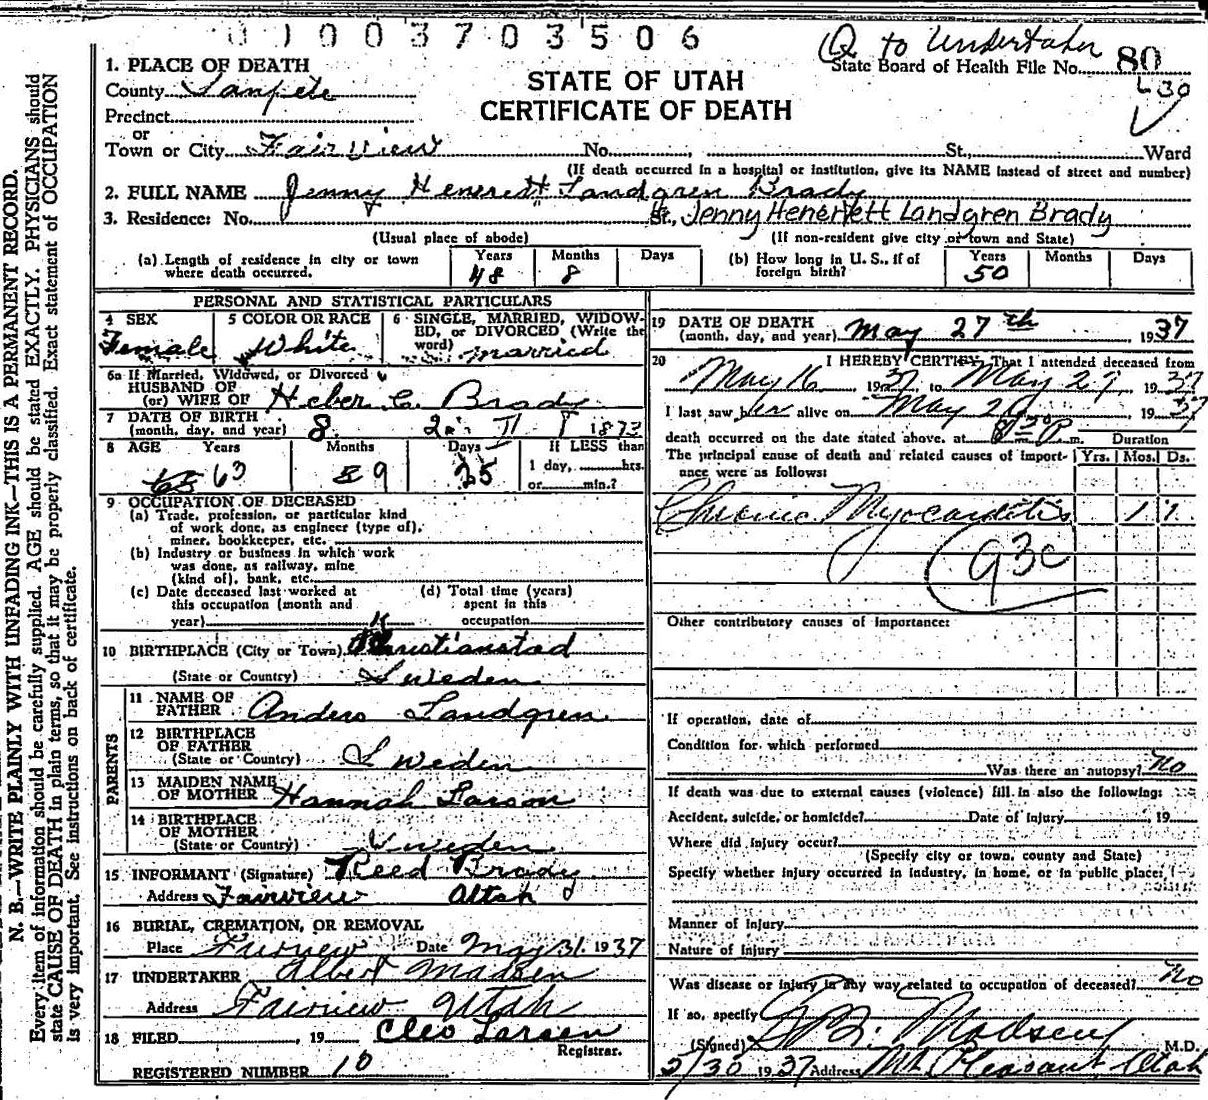 0 1 0 0 3 7 0 3 5 0 6
Q to Undertaker
State Board of Health File No. 80
STATE OF UTAH
CERTIFICATE OF DEATH
1. PLACE OF DEATH
County Sanpete
Precinct
or
Town or City Fairview No. , St., Ward
(If death occurred in a hospital or institution, give its NAME instead of street and number)
2. FULL NAME Jenny Henerett Landgren Brady
3. Residence: No. St, Jenny Heneriett Landgren Brady
(Usual place of abode) (If non-resident give city or town and State)
(a) Length of residence in city or town where death occurred. Years 48 Months 8 Days
(b) How long in U. S., if of foreign birth? Years 50 Months Days
PERSONAL AND STATISTICAL PARTICULARS
4 SEX Female
5 COLOR OR RACE White
6 SINGLE, MARRIED, WIDOWED, or DIVORCED (Write the word) married
6a If Married, Widowed, or Divorced
HUSBAND OF
(or) WIFE OF Heber C. Brady
7 DATE OF BIRTH
(month, day, and year) 8 2 1873
8 AGE Years 63 Months 9 Days 25 If LESS than
1 day, hrs.
or min.?
9 OCCUPATION OF DECEASED
(a) Trade, profession, or particular kind
of work done, as engineer (type of),
miner, bookkeeper, etc.
(b) Industry or business in which work
was done, as railway, mine
(kind of), bank, etc.
(c) Date deceased last worked at
this occupation (month and
year)
(d) Total time (years)
spent in this
occupation
10 BIRTHPLACE (City or Town) Kristianstad
(State or Country) Sweden
PARENTS
11 NAME OF
FATHER Anders Landgren
12 BIRTHPLACE
OF FATHER
(State or Country) Sweden
13 MAIDEN NAME
OF MOTHER Hannah Larson
14 BIRTHPLACE
OF MOTHER
(State or Country) Sweden
15 INFORMANT (Signature) Reed Brady
Address Fairview Utah
16 BURIAL, CREMATION, OR REMOVAL
Place Fairview Date May 31 1937
17 UNDERTAKER Albert Madsen
Address Fairview Utah
18 FILED , 19 Cleo Larsen
Registrar.
REGISTERED NUMBER 10
19 DATE OF DEATH
(month, day, and year) May 27th 1937
20 I HEREBY CERTIFY, That I attended deceased from
May 16, 1937, to May 27, 1937
I last saw her alive on May 26, 1937
death occurred on the date stated above, at 8 30 P m. Duration
The principal cause of death and related causes of importance were as follows: Yrs. Mos. Ds.
Chronic Myocarditis
93c
Other contributory causes of importance:
If operation, date of
Condition for which performed
Was there an autopsy? No
If death was due to external causes (violence) fill in also the following:
Accident, suicide, or homicide? Date of injury , 19
Where did injury occur?
(Specify city or town, county and State)
Specify whether injury occurred in industry, in home, or in public place,
Manner of injury
Nature of injury
Was disease or injury in any way related to occupation of deceased? No
If so, specify
(Signed) Madsen M.D.
5/30 1937 Address Mt. Pleasant, Utah
N. B.—WRITE PLAINLY WITH UNFADING INK—THIS IS A PERMANENT RECORD.
Every item of information should be carefully supplied. AGE should be stated EXACTLY. PHYSICIANS should
state CAUSE OF DEATH in plain terms, so that it may be properly classified. Exact statement of OCCUPATION
is very important. See instructions on back of certificate.